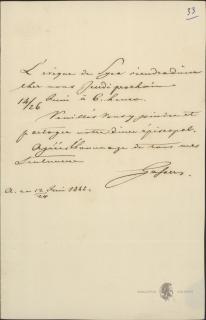 33
L'évêque de Syra viendra dîner
chez nous Jeudi prochain
14/26 Juin à 6 heures.
Veuillez vous y joindre et
partager notre dîner épiscopal.
Agréez l'hommage de tous mes
Sentimens
A. ce 12/24 Juin 184